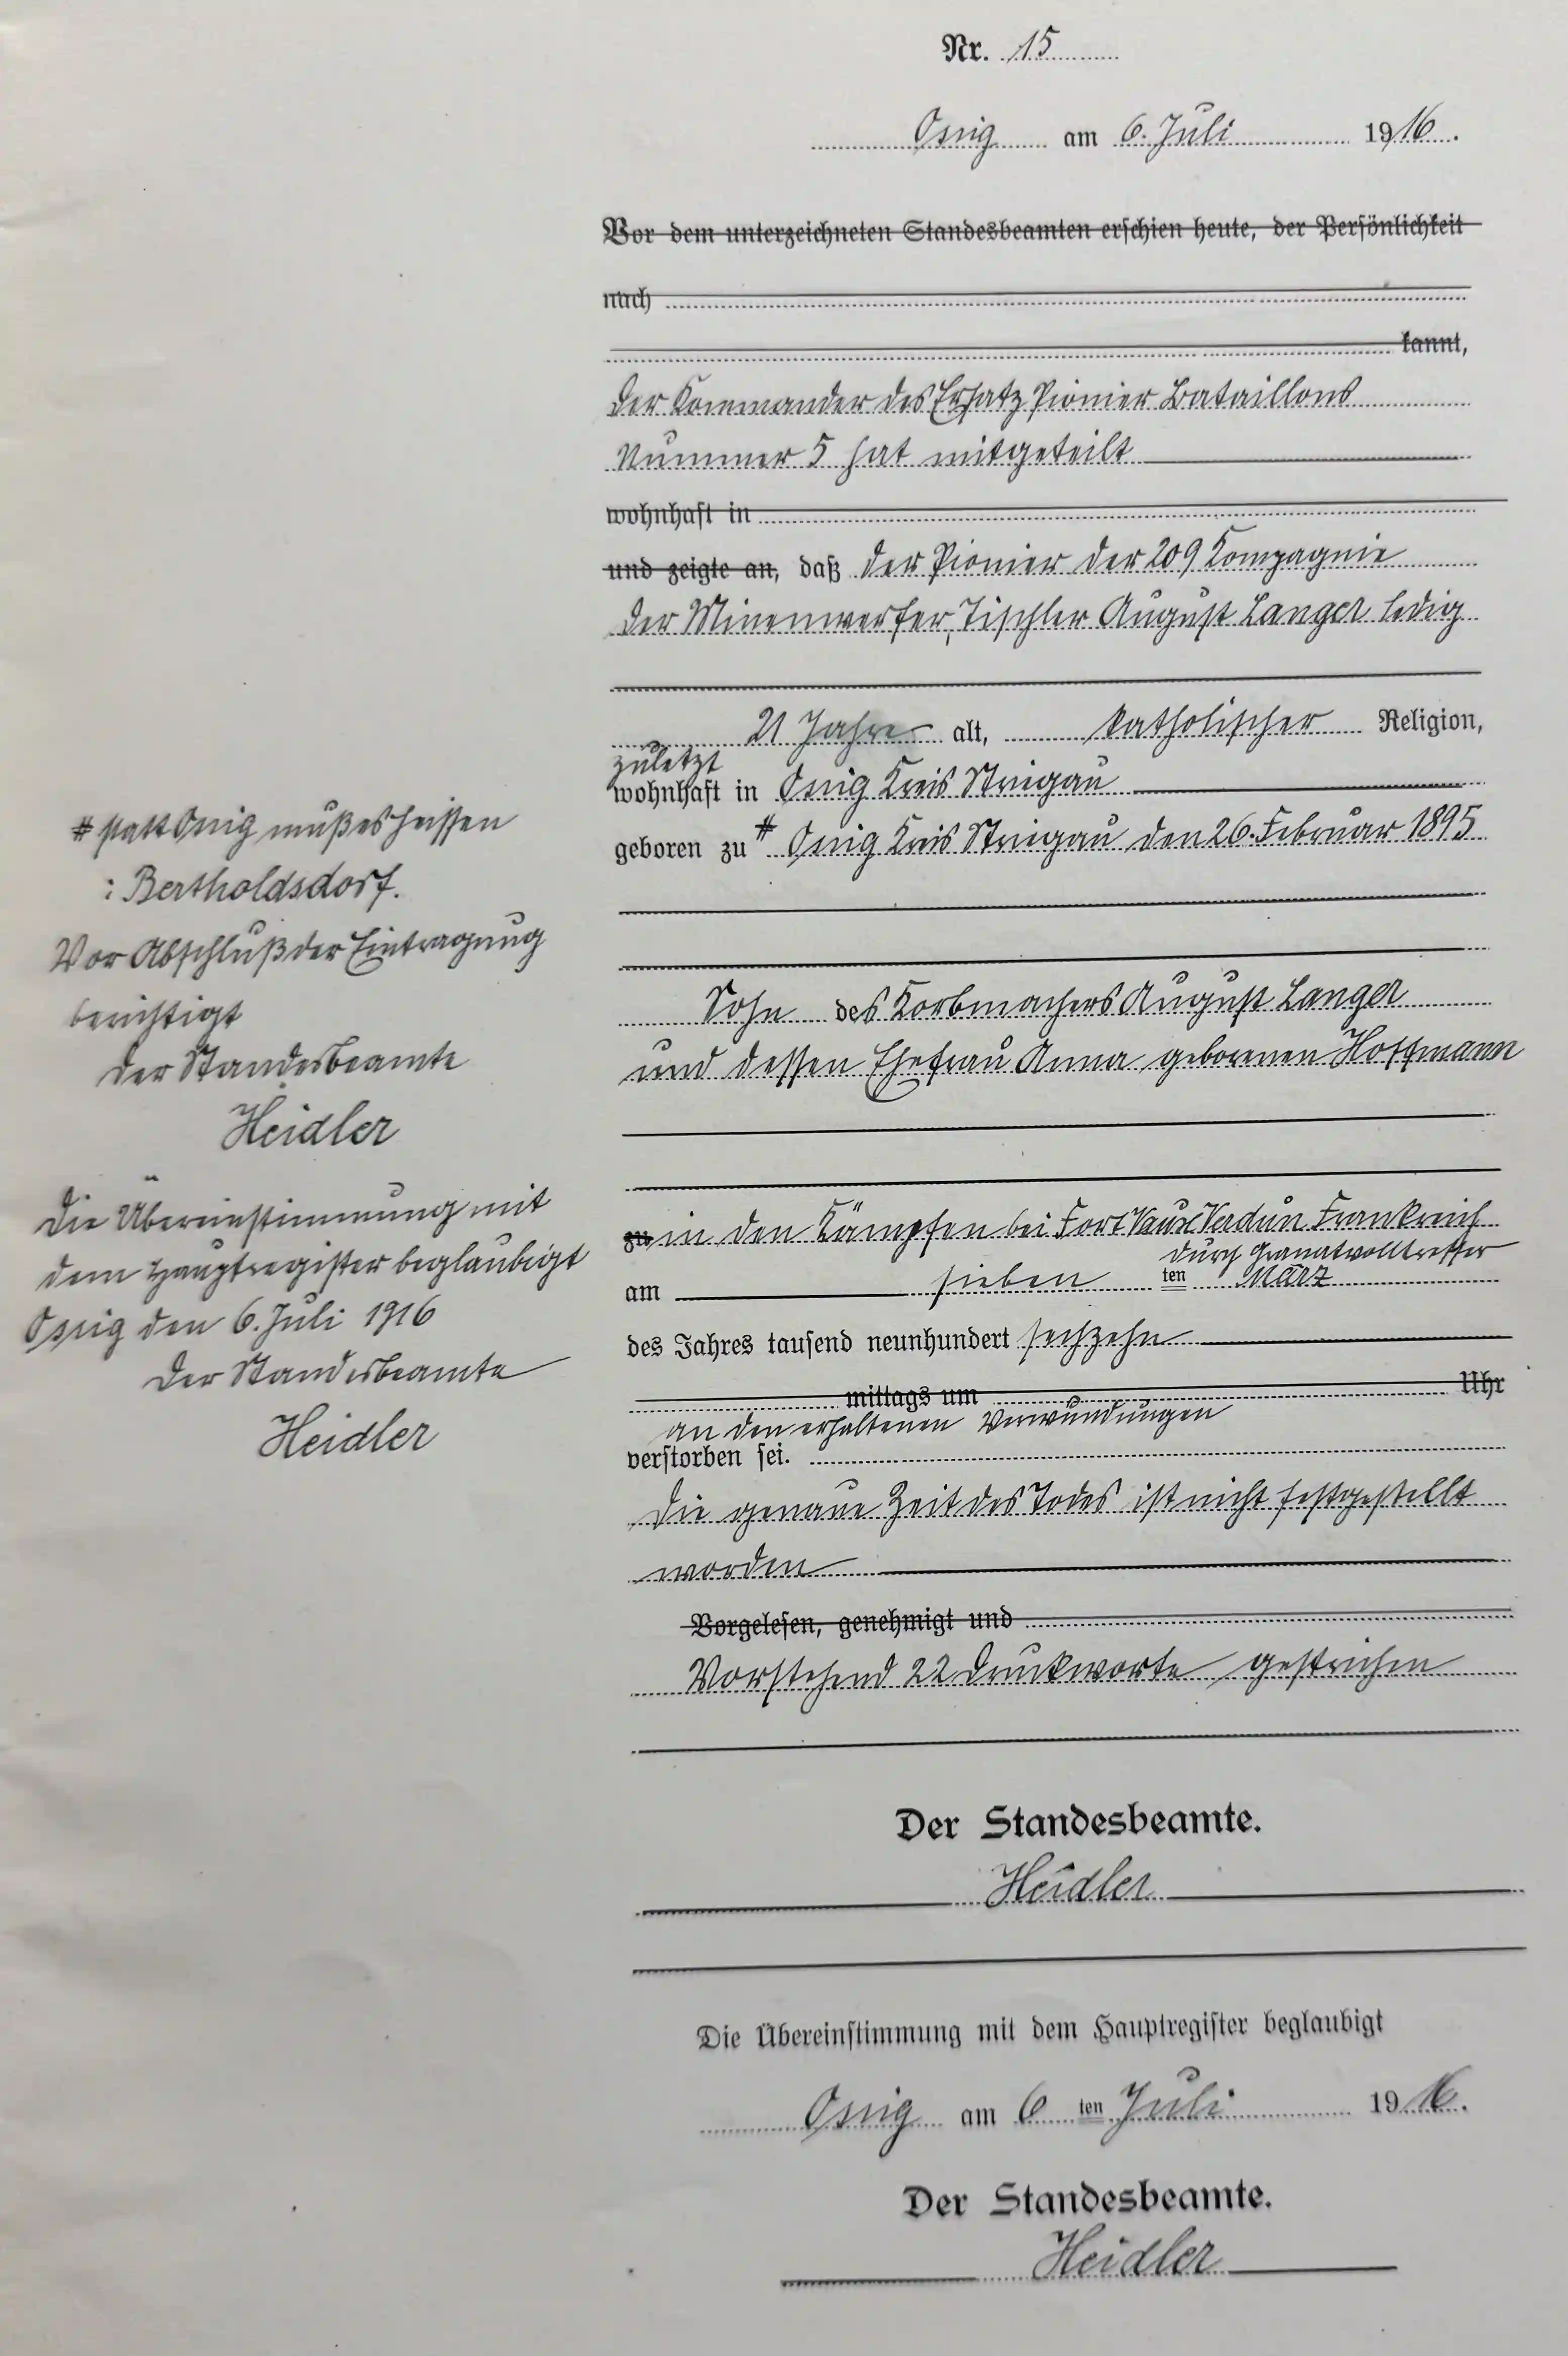 Nr. 15
Ossig am 6. Juli 1916.
Vor dem unterzeichneten Standesbeamten erschien heute, der Persönlichkeit
nach
kannt,
der Kommander des Ersatz Pionier Bataillons
Nummer 5 hat mitgeteilt
wohnhaft in
und zeigte an, daß der Pionier der 209 Kompagnie
der Minenwerfer, Tischler August Langer ledig
21 Jahre alt, katholischer Religion,
zuletzt
wohnhaft in Ossig Kreis Striegau
geboren zu # Ossig Kreis Striegau den 26. Februar 1895
Sohn des Korbmachers August Langer
und dessen Ehefrau Anna geborenen Hoffmann
zu in den Kämpfen bei Fort Vaux Verdun Frankreich
durch Granatvolltreffer
am sieben ten März
des Jahres tausend neunhundert sechzehn
mittags um Uhr
an den erhaltenen Verwundungen
verstorben sei.
Die genaue Zeit des Todes ist nicht festgestellt
worden
Vorgelesen, genehmigt und
Vorstehend 22 Druckworte gestrichen
Der Standesbeamte.
Heidler
Die Übereinstimmung mit dem Hauptregister beglaubigt
Ossig am 6 ten Juli 1916.
Der Standesbeamte.
Heidler
# statt Ossig muß es heissen
: Bertholdsdorf.
Vor Abschluß der Eintragung
berichtigt
Der Standesbeamte
Heidler
Die Übereinstimmung mit
dem Hauptregister beglaubigt
Ossig den 6. Juli 1916
Der Standesbeamte
Heidler